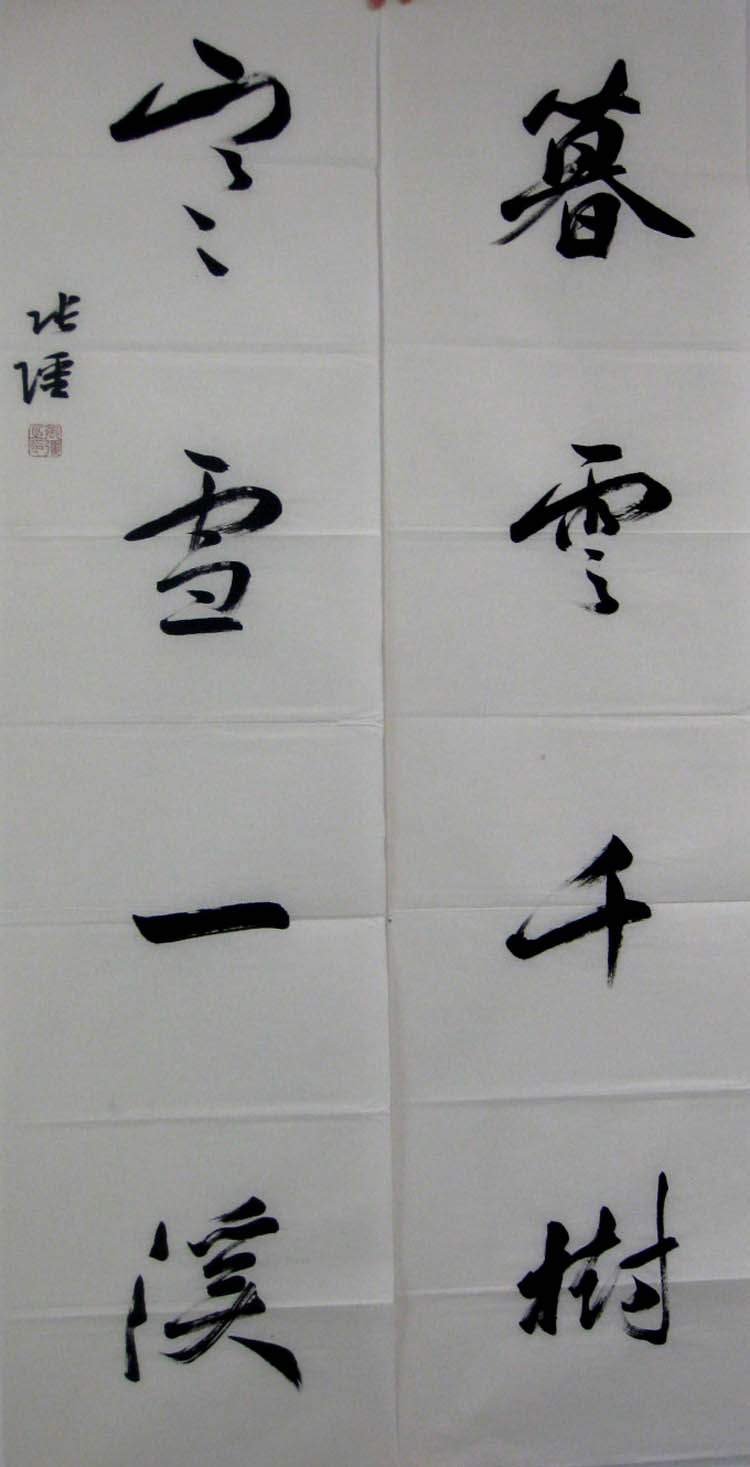 暮雲千樹
寒雪一溪